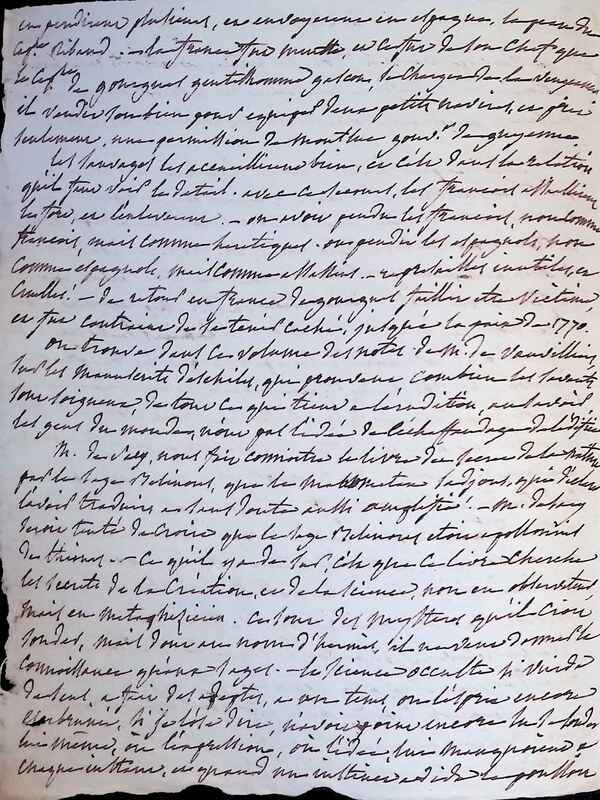 en pendirent plusieurs, en envoyerent en espagne, la peau du
Capne Ribaud. - la france fut muette, et ce fut de son chef que
le Capne de gourgues gentilhomme gascon, se chargea de la vengeance
il vendit son bien pour equiper deux petits navires, et prit
seulement, une permission de montluc gouvr. de guyenne
les sauvages les accueillirent bien, et c'est dans la relation
qu'il faut voir le detail. avec ce secours, les francois assaillirent
les forts, et l'enleverent. - on avoit pendu les francois, non comme
francois, mais comme heretiques. on pendit les espagnols, non
comme espagnols, mais comme assassins. - represailles inutiles, et
cruelles. - de retour en france de gourgues faillit etre victime,
et fut contraint de se tenir caché, jusqu'à la paix de 1770.
on trouve dans ce volume des notes de M. de Vauvilliers,
sur les manuscrits d'eschile, qui prouvent combien les savants
sont soigneux, de tout ce qui tient a l'erudition, ou savoir
les gens du monde, n'ont pas l'idée de l'echaffaudage de l'edifice
M. de Sacy, nous fait connoitre le livre du secret de la nature
par le sage Belinous, que le mahometan
l'avoit traduire et sans doute aussi amplifié. - m. de Sacy
seroit tenté de croire que le sage Belinous etoit apollonius
de thiane. - Ce qu'il y a de sur, c'est que ce livre cherche
les secrets de la Création, et de la science, non en observateur
mais en metaphisicien. ce sont des mysteres qu'il croit
sonder, mais dont au nom d'hermès, il ne veut donner la
connoissance qu'aux sages. - la science occulte si vuide
de sens, a fait des adeptes, a un tems, où l'esprit encore
, si j'ose dire, n'avoit point encore
lui même, où l'expression, où l'idée, lui manquoient a
chaque instant, et quand un a dû le pousser